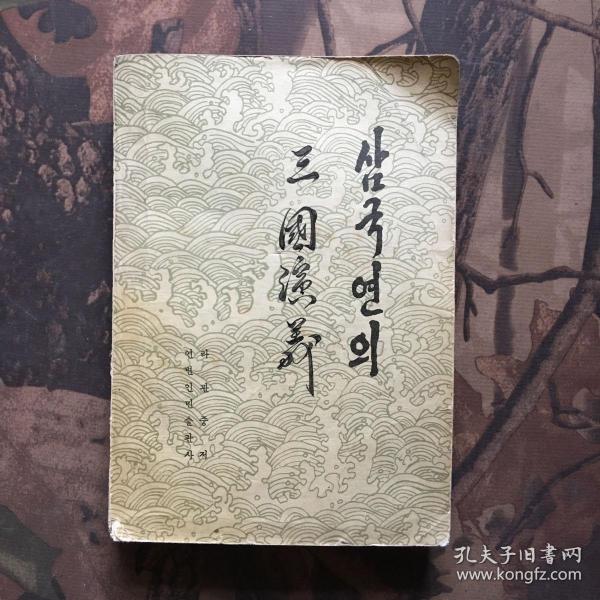 삼국연의
三國演義
라관중 저
연변인민출판사
孔夫子旧书网
www.kongfz.com